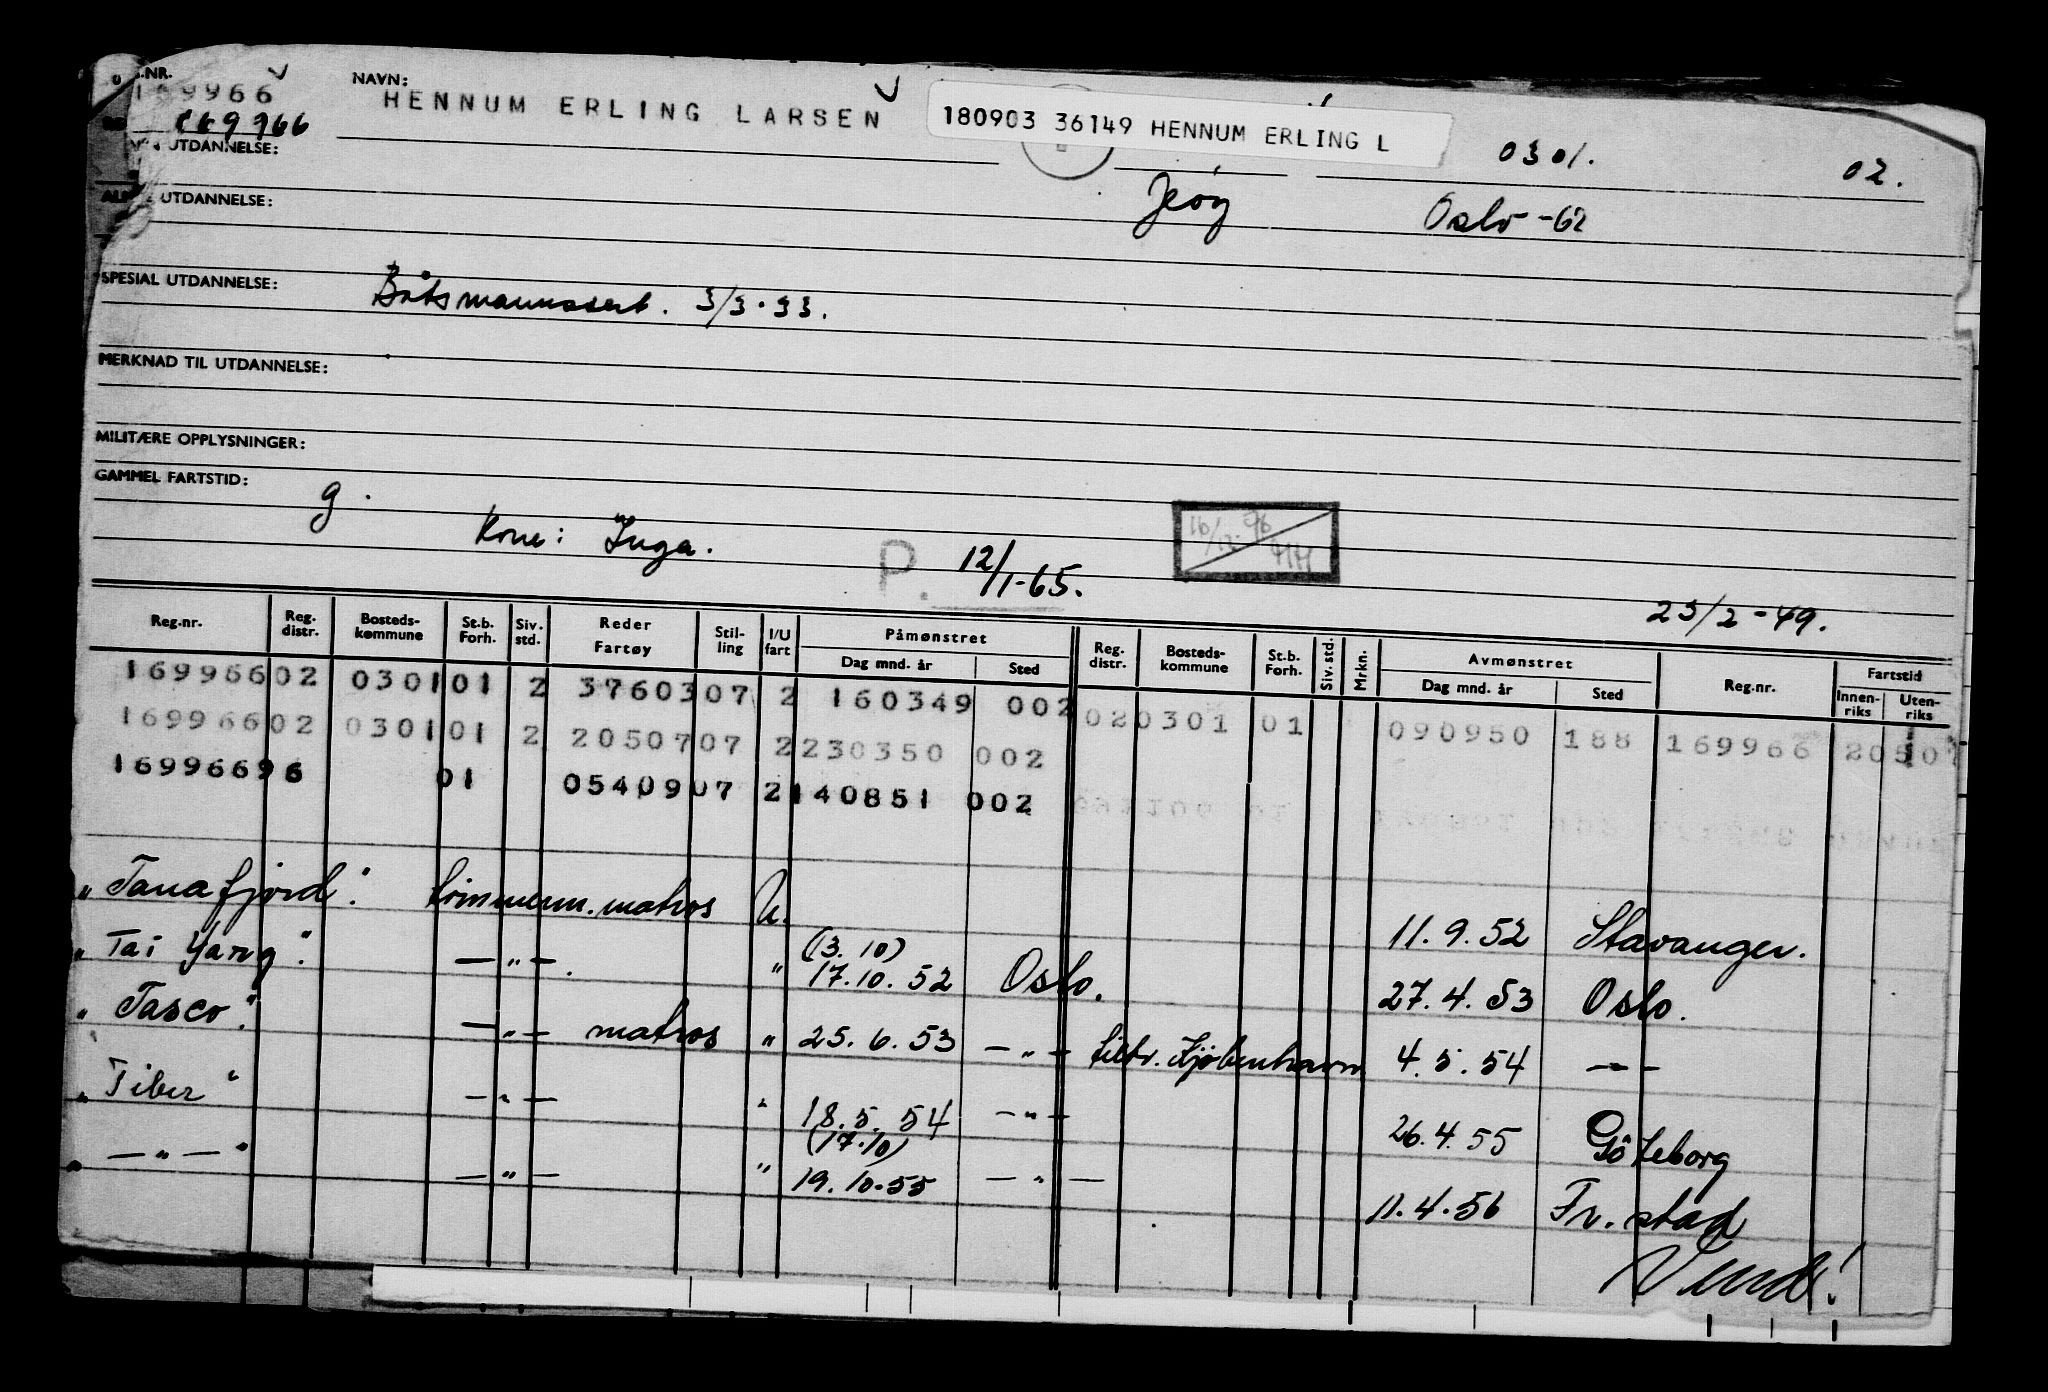 .NR. NAVN:
169966 HENNUM ERLING LARSEN 180903 36149 HENNUM ERLING L
169966 0301. 02.
UTDANNELSE:
UTDANNELSE: Oslo -62
SPESIAL UTDANNELSE: Båtsmannssert. 3/3.33.
MERKNAD TIL UTDANNELSE:
MILITÆRE OPPLYSNINGER:
GAMMEL FARTSTID: g.
Kone: Inga. P. 12/1-65. 16/12-96 HH
23/2-49.
Reg.nr. Reg. distr. Bosteds-kommune St.b. Forh. Siv. std. Reder Fartøy Stil-ling I/U fart Påmønstret Dag mnd. år Sted Reg. distr. Bosteds-kommune St.b. Forh. Siv. std. Mrkn. Avmønstret Dag mnd. år Sted Reg.nr. Fartstid Innen-riks Uten-riks
169966 02 0301 01 2 37603 07 2 160349 002 02 0301 01 090950 188 169966 20507
169966 02 0301 01 2 20507 07 2 230350 002
169966 96 01 05409 07 2 140851 002
"Tanafjord". tømmerm. matros U. 11.9.52 Stavanger.
"Tai Yang". — " —. " (3.10) 17.10.52 Oslo. 27.4.53 Oslo.
"Tasco". — " — matros " 25.6.53 — " — tiltr. Kjøbenhavn 4.5.54 — " —
"Tiber" — " — " 18.5.54 — " — 26.4.55 Göteborg
" — " — " — " — " (17.10) 19.10.55 — " — 11.4.56 Fr.stad
Vend!